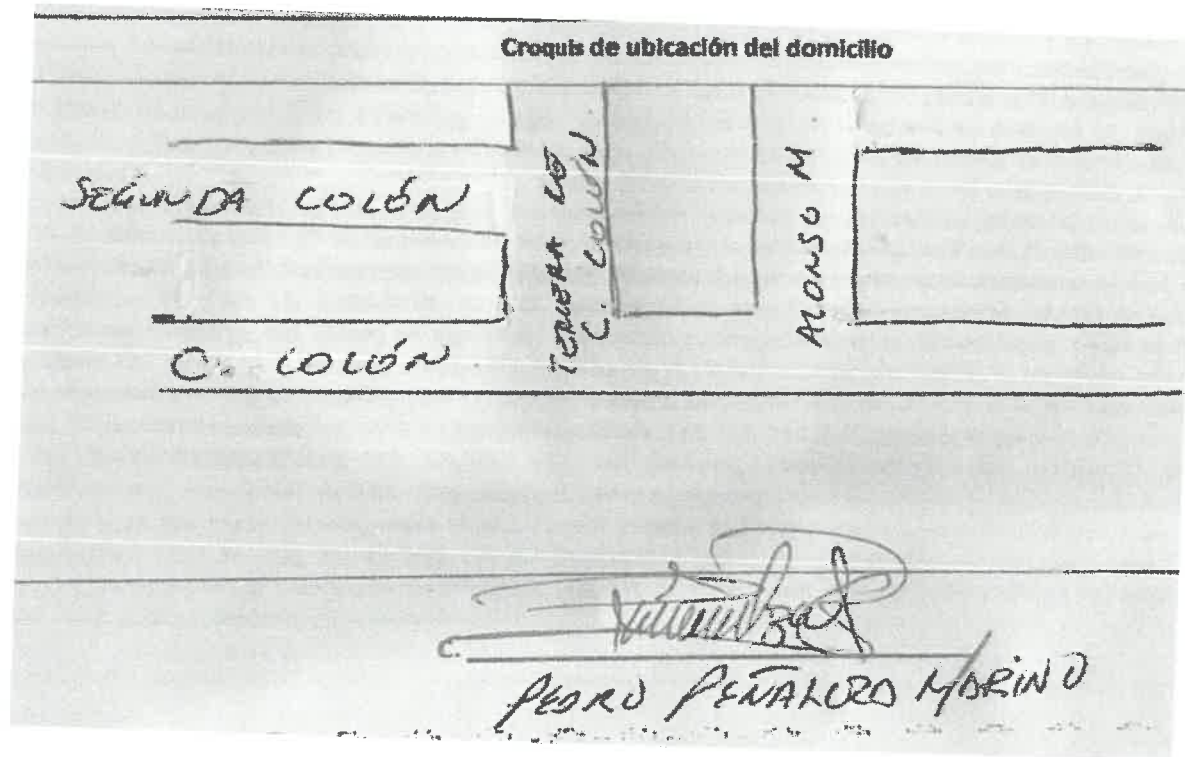 Croquis de ubicación del domicilio
SEGUNDA COLÓN
TERCERA DE
C. COLÓN.
ALONSO M
C. COLÓN.
C.
PEDRO PEÑALOZA MARINO